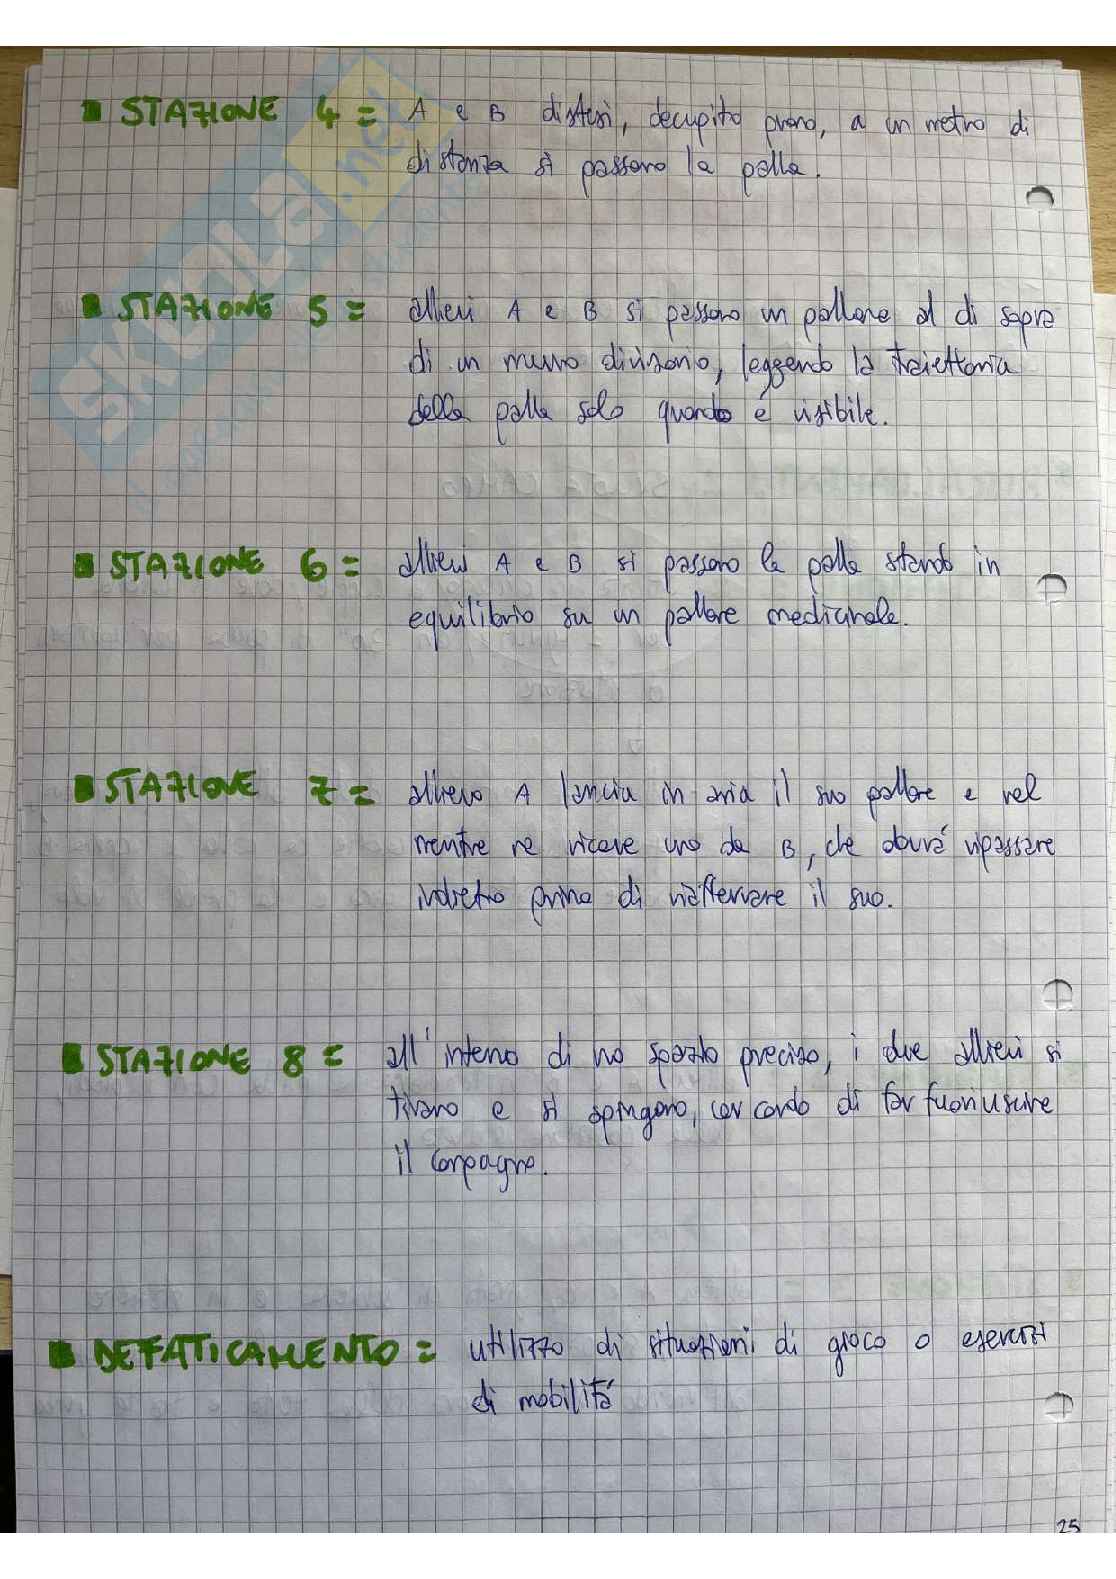 STAZIONE 4 = A e B distesi, decupito prono, a un metro di
distanza si passano la palla.
STAZIONE 5 = allievi A e B si passano un pallone al di sopra
di un muro divisorio, leggendo la traiettoria
della palla solo quando é visibile.
STAZIONE 6 = allievi A e B si passano la palla stando in
equilibrio su un pallone medicinale.
STAZIONE 7 = allievo A lancia in aria il suo pallone e nel
mentre ne riceve uno da B, che dovrá ripassare
indietro prima di riafferrare il suo.
STAZIONE 8 = all'interno di uno spazio preciso, i due allievi si
tirano e si spingono, cercando di far fuoriuscire
il compagno.
DEFATICAMENTO = utilizzo di situazioni di gioco o esercizi
di mobilitá
25
SKUOLA.net